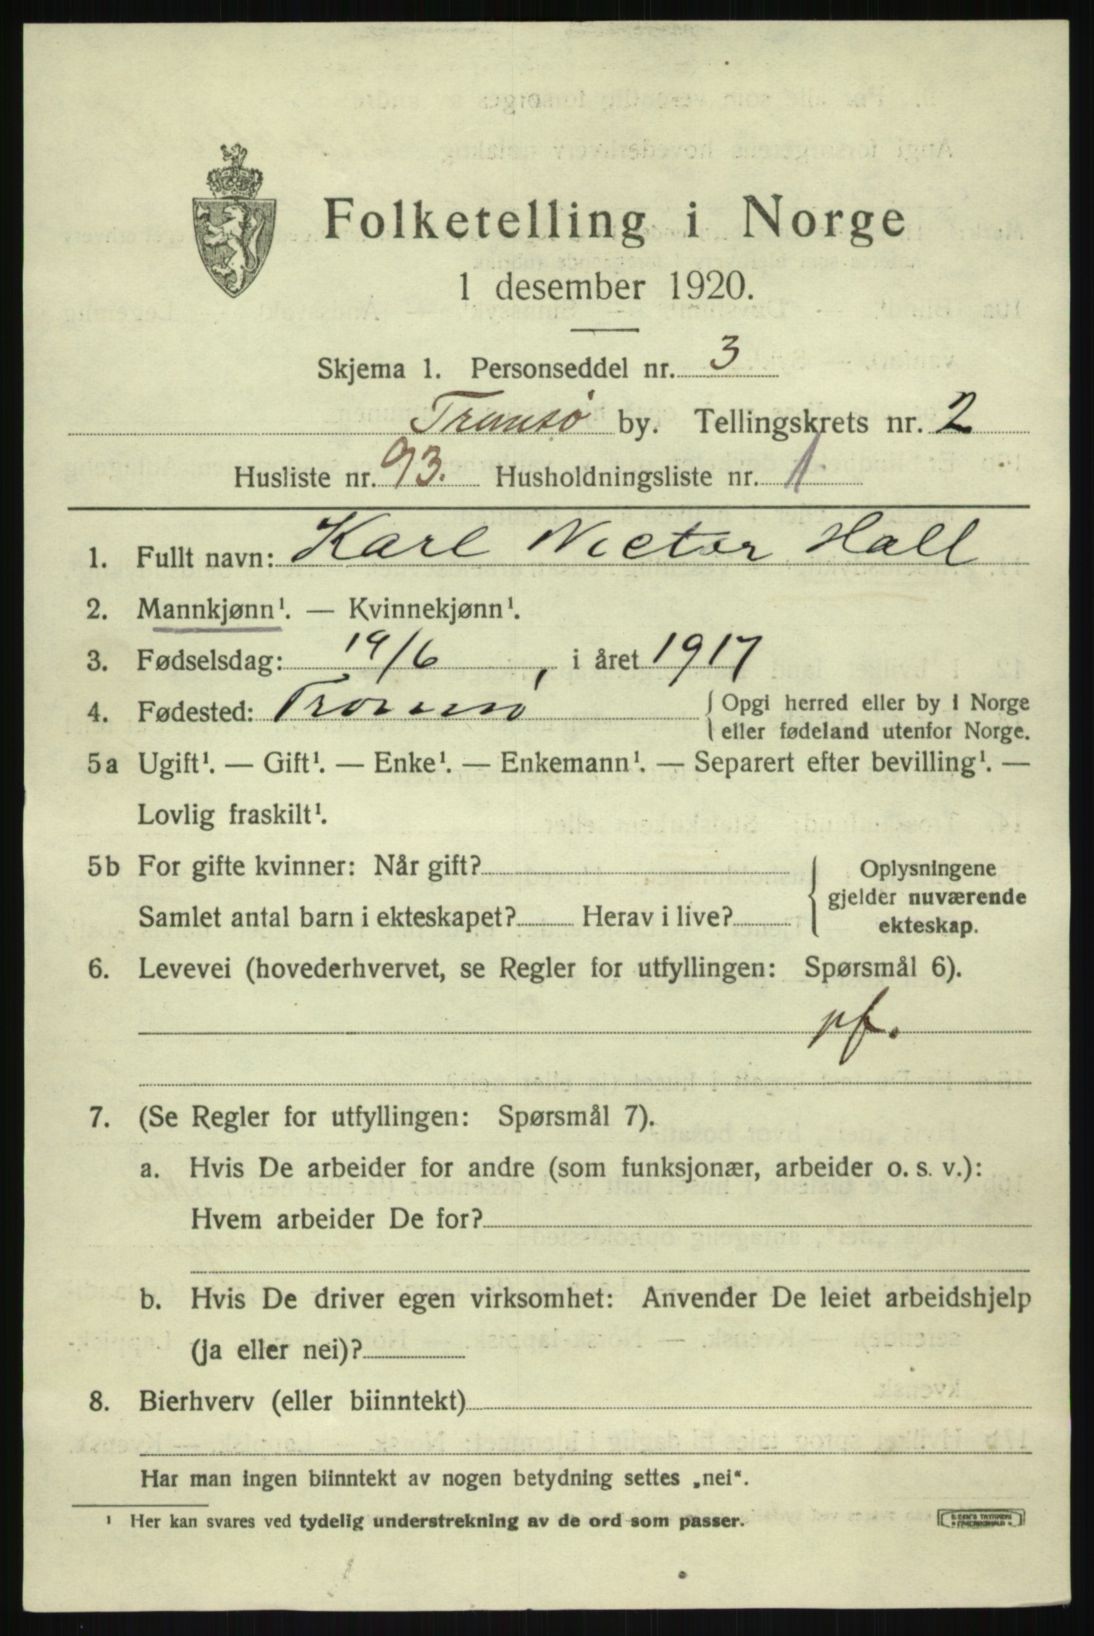 Folketelling i Norge
1 desember 1920.
Skjema 1. Personseddel nr. 3
Tromsø by. Tellingskrets nr. 2
Husliste nr. 93. Husholdningsliste nr. 1
1. Fullt navn: Karl Victor Hall
2. Mannkjønn¹. — Kvinnekjønn¹.
3. Fødselsdag: 19/6, i året 1917
4. Fødested: Tromsø { Opgi herred eller by i Norge
eller fødeland utenfor Norge.
5a Ugift¹. — Gift¹. — Enke¹. — Enkemann¹. — Separert efter bevilling¹. —
Lovlig fraskilt¹.
5b For gifte kvinner: Når gift?
Samlet antal barn i ekteskapet? Herav i live?
{ Oplysningene
gjelder nuværende
ekteskap.
6. Levevei (hovederhvervet, se Regler for utfyllingen: Spørsmål 6).
pf.
7. (Se Regler for utfyllingen: Spørsmål 7).
a. Hvis De arbeider for andre (som funksjonær, arbeider o. s. v.):
Hvem arbeider De for?
b. Hvis De driver egen virksomhet: Anvender De leiet arbeidshjelp
(ja eller nei)?
8. Bierhverv (eller biinntekt)
Har man ingen biinntekt av nogen betydning settes „nei“.
¹ Her kan svares ved tydelig understrekning av de ord som passer.